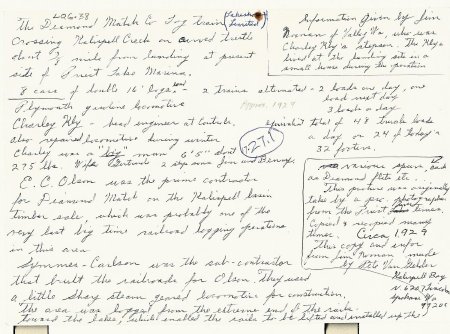 LOG-38
The Diamond Match Co log train
Crossing Kalispell Creek on curved trestle
about 1/2 mile from landing at present
site of Priest Lake Marina.
8 cars of double 16' logs
2 trains alternated - 2 loads one day, one
load next day
3 loads a day
Plymouth gasoline locomotive
Approx. 1929
Charley Kly - head engineer at Controls.
also repaired locomotive during winter
Charley was a "big" man 6'5" about
275 lbs. Wife Gertrude & step sons Jim and Benny.
7-27-1
equivalent total of 48 truck loads
a day or 24 of today's
32 footers.
C.C. Olson was the prime contractor
for Diamond Match on the Kalispell basin
timber sale, which was probably one of the
very last big time railroad logging operations
in this area
Symmes-Carlson was the sub-contractor
that built the railroads for Olson. They used
a little Shay steam geared locomotive for construction.
The area was logged from the extreme end of the rails
toward the lake, which enabled the rails to be lifted and
Information given by Jim
Norman of Valley Wa, who was
Charley Kly's stepson. The Klys
lived at the landing site in a
small house during the operation
various spare
as Diamond flats etc.
This picture was originally
taken by a pro. photographer
from the Priest River area.
Copied & recopied many
times. Circa 1929
This copy and infor
from Jim Norman made
by Pete Van
Kalispell Bay
Spokane Wa
99205